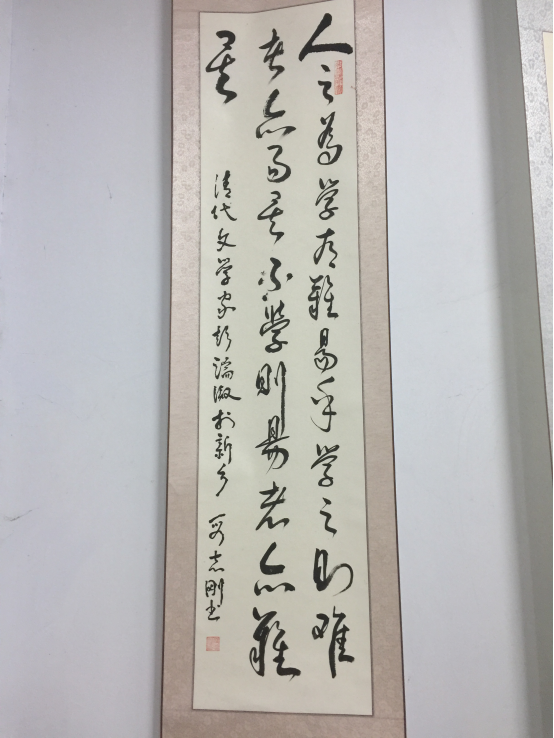 人之為学有難易乎学之则难
者亦易矣不學則易者亦難
矣
清代文学家彭端淑於新乡 志刚书